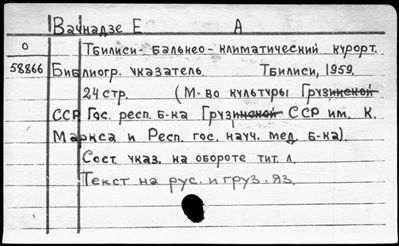 Вачнадзе Е А
0 Тбилиси- бальнео-климатический курорт.
58866 Библиогр. указатель. Тбилиси, 1959.
24 стр. (М-во культуры Грузинской
ССР Гос. респ. б-ка Грузинской ССР им. К.
Маркса и Респ. гос. науч. мед. б-ка).
Сост. указ. на обороте тит. л.
Текст на рус. и груз. яз.